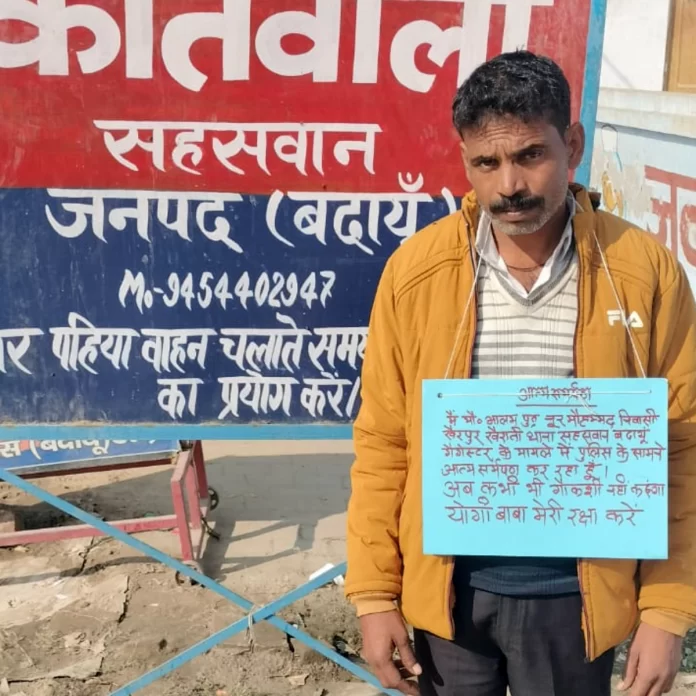 कोतवाली
सहसवान
जनपद (बदायूँ)
M.-9454402947
पहिया वाहन चलाते समय
का प्रयोग करें/
(बदायूँ)
FILA
आत्मसमर्पण
मैं मौ० आलम पुत्र नूर मौहम्मद निवासी
खैरपुर खैराती थाना सहसवान बदायूं
गैंगेस्टर के मामले में पुलिस के सामने
आत्म समर्पण कर रहा हूँ।
अब कभी भी गौकशी नही करूंगा
योगी बाबा मेरी रक्षा करें